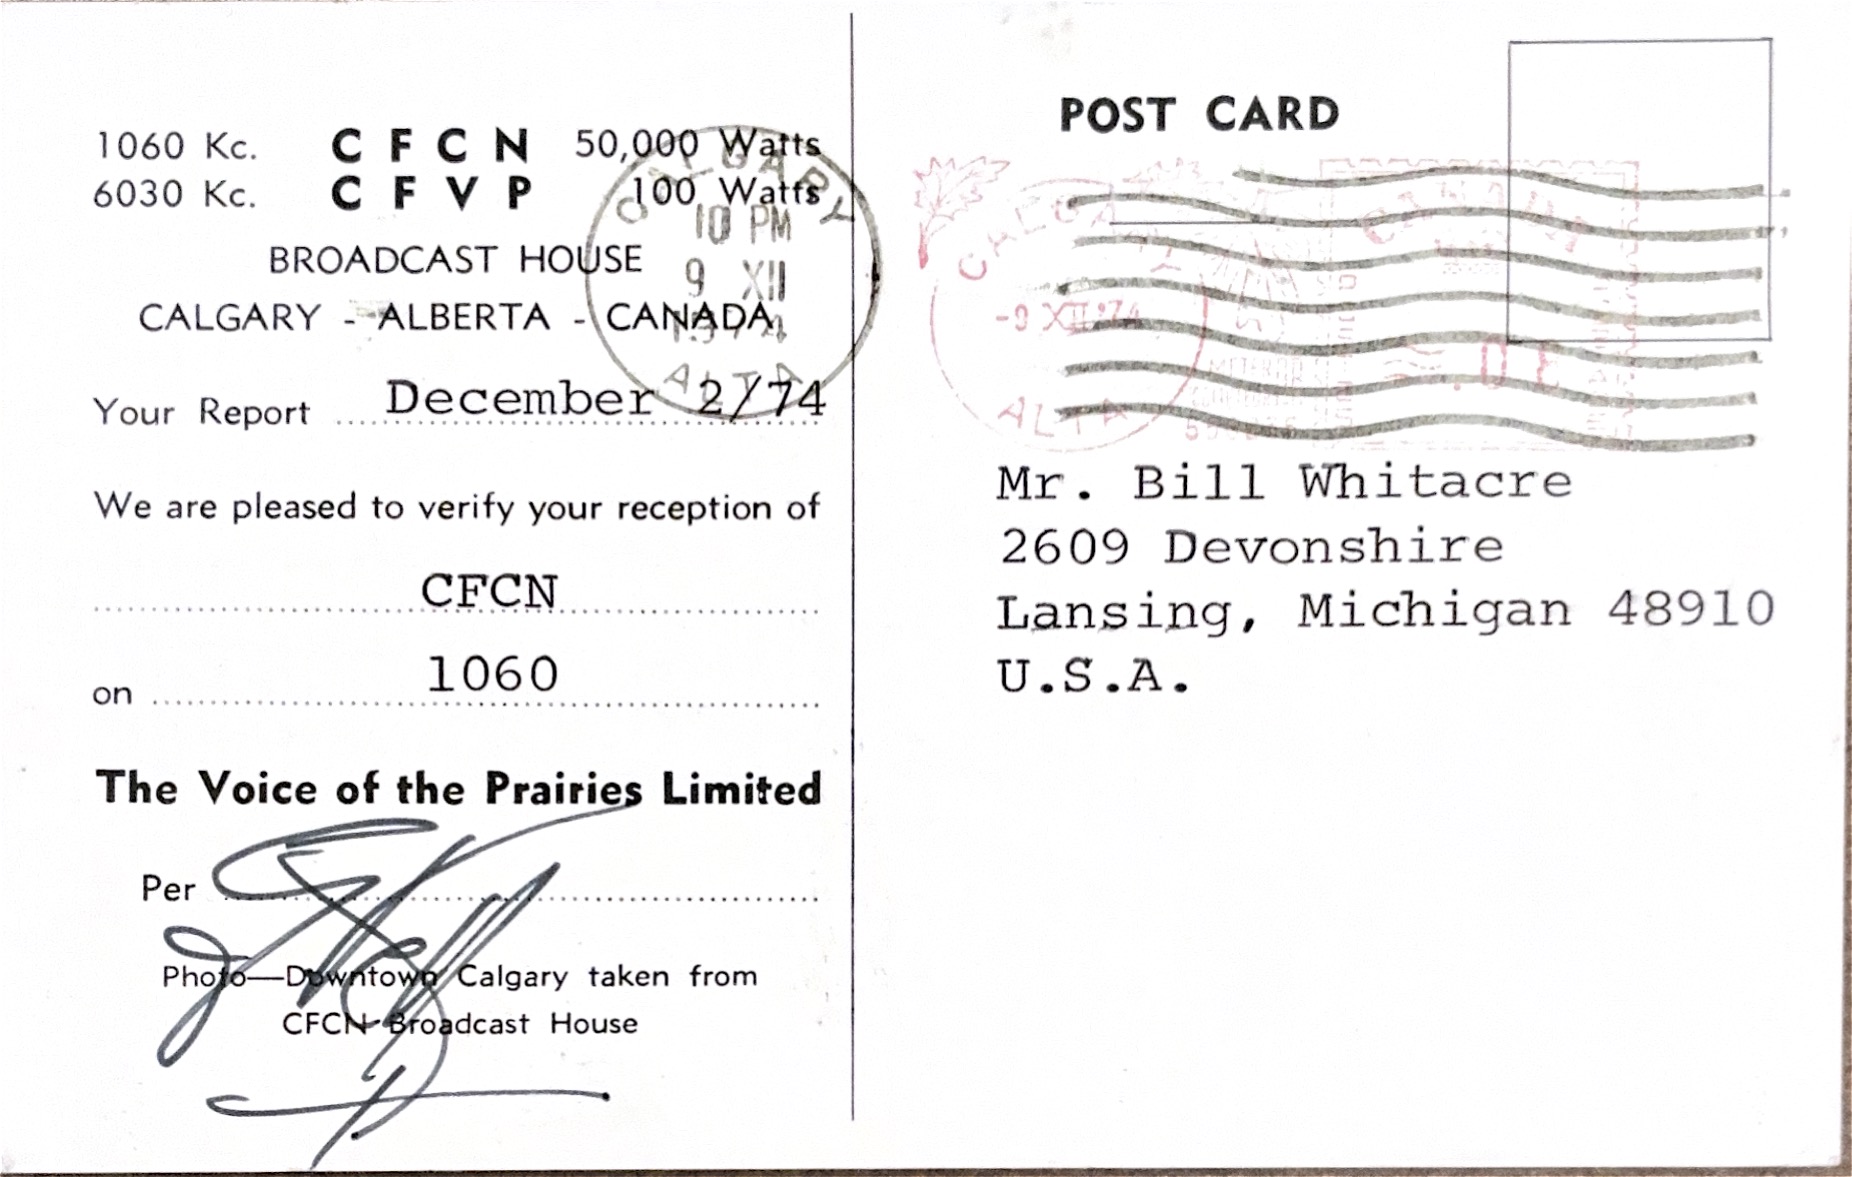 1060 Kc. CFCN 50,000 Watts
6030 Kc. CFVP 100 Watts
BROADCAST HOUSE
CALGARY - ALBERTA - CANADA
Your Report December 2/74
We are pleased to verify your reception of
CFCN
on 1060
The Voice of the Prairies Limited
Per
Photo—Downtown Calgary taken from
CFCN Broadcast House
CALGARY
10 PM
9 XII
1974
ALTA
POST CARD
CALGARY
-9 XII '74
ALTA
CANADA
Mr. Bill Whitacre
2609 Devonshire
Lansing, Michigan 48910
U.S.A.